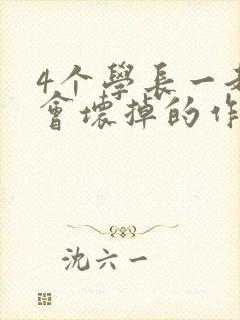 4个學長一
會壞掉的作
沈六一